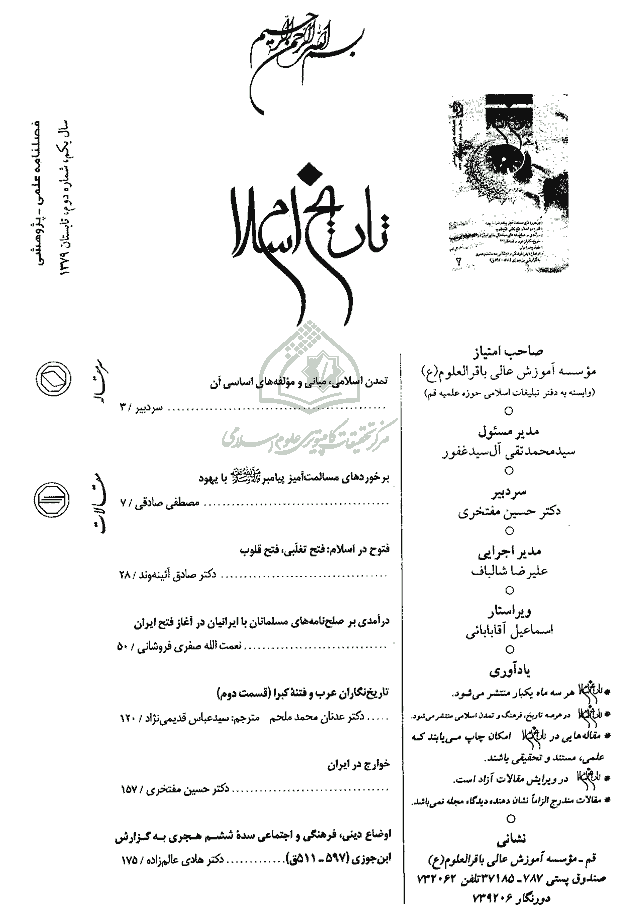 بسم الله الرحمن الرحیم
تاریخ اسلام
فصلنامه علمی - پژوهشی
سال یکم، شماره دوم، تابستان ۱۳۷۹
صاحب امتیاز
مؤسسه آموزش عالی باقرالعلوم(ع)
(وابسته به دفتر تبلیغات اسلامی حوزه علمیه قم)
مدیر مسئول
سیدمحمدتقی آل‌سیدغفور
سردبیر
دکتر حسین مفتخری
مدیر اجرایی
علیرضا شالباف
ویراستار
اسماعیل آقابابائی
یادآوری
* تاریخ اسلام هر سه ماه یکبار منتشر می‌شود.
* تاریخ اسلام در عرصه تاریخ، فرهنگ و تمدن اسلامی منتشر می‌شود.
* مقاله‌هایی در تاریخ اسلام امکان چاپ می‌یابند که
علمی، مستند و تحقیقی باشند.
* تاریخ اسلام در ویرایش مقالات آزاد است.
* مقالات مندرج الزاماً نشان دهنده دیدگاه مجله نمی‌باشد.
نشانی
قم - مؤسسه آموزش عالی باقرالعلوم(ع)
صندوق پستی ۷۸۷-۳۷۱۸۵ تلفن ۷۳۲۰۶۲
دورنگار ۷۳۹۲۰۶
سرمقاله
تمدن اسلامی، مبانی و مؤلفه‌های اساسی آن
سردبیر / ۳
مرکز تحقیقات کامپیوتری علوم اسلامی
مقالات
برخوردهای مسالمت‌آمیز پیامبر ﷺ با یهود
مصطفی صادقی / ۷
فتوح در اسلام: فتح تغلّبی، فتح قلوب
دکتر صادق آئینه‌وند / ۲۸
درآمدی بر صلح‌نامه‌های مسلمانان با ایرانیان در آغاز فتح ایران
نعمت الله صفری فروشانی / ۵۰
تاریخ‌نگاران عرب و فتنهٔ کبرا (قسمت دوم)
دکتر عدنان محمد ملحم مترجم: سیدعباس قدیمی‌نژاد / ۱۲۰
خوارج در ایران
دکتر حسین مفتخری / ۱۵۷
اوضاع دینی، فرهنگی و اجتماعی سدهٔ ششم هجری به گزارش
ابن‌جوزی (۵۹۷ - ۵۱۱ق) دکتر هادی عالم‌زاده / ۱۷۵